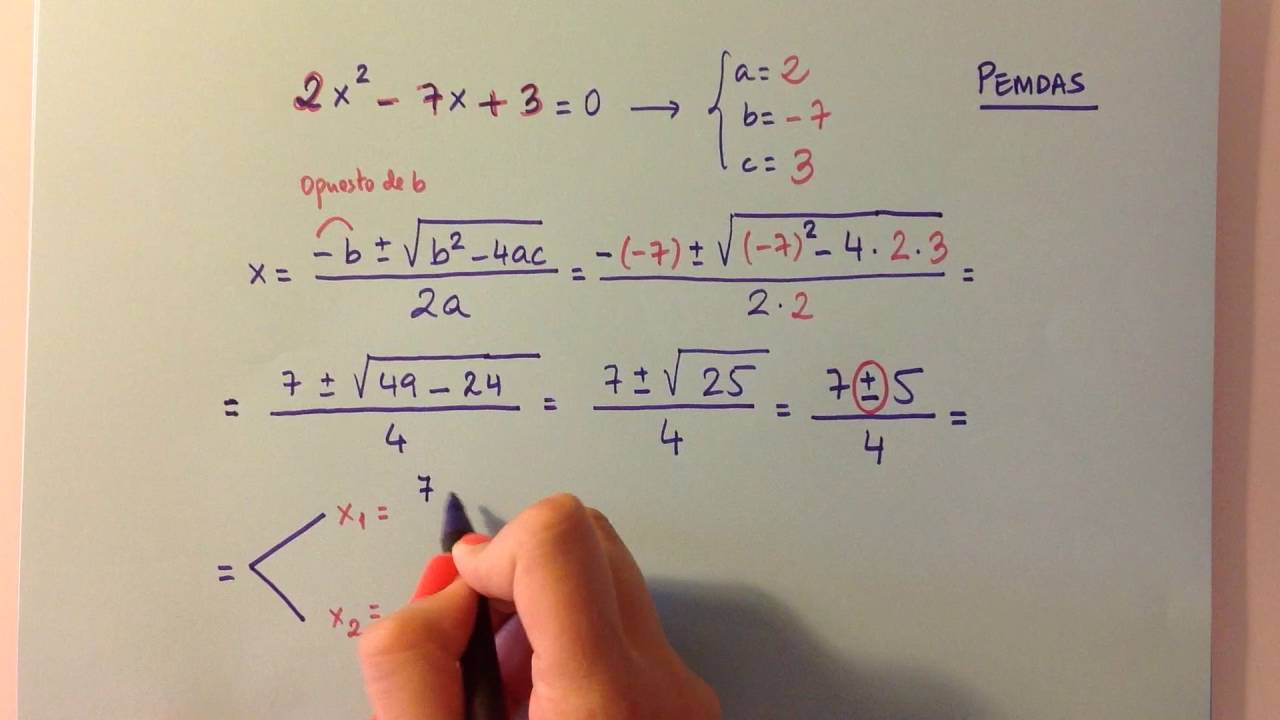 2x² - 7x + 3 = 0 → { a = 2
b = -7
c = 3
PEMDAS
Opuesto de b
x = (-b ± √(b² - 4ac)) / 2a = (-(-7) ± √((-7)² - 4 · 2 · 3)) / (2 · 2) =
= (7 ± √(49 - 24)) / 4 = (7 ± √25) / 4 = (7 ± 5) / 4 =
= < x₁ = 7
x₂ =